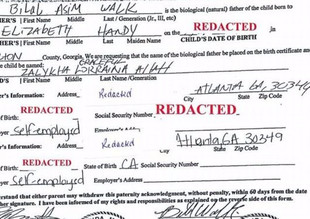 Bilal Asim Walk is the biological (natural) father of the child born to
HER'S | First Name Middle Last / Generation (Jr., III, etc)
ELIZABETH HANDY on REDACTED
HER'S | First Name Middle Maiden Name CHILD'S DATE OF BIRTH
County, Georgia. We are requesting that the name of the biological father be placed on the birth certificate and
the child be named: GRACEFUL
ZALYKHA LORRAINA ALLAH
D'S | First Name Middle Last/Generation
ATLANTA GA, 30349
r's Information: Address Redacted City State Zip Code
REDACTED Social Security Number REDACTED
of Birth:
er self-employed Employer's Address
Redacted Atlanta, GA 30349
r's Information: Address City State Zip Code
REDACTED State of Birth CA Social Security Number
of Birth:
yer self-employed Employer's Address
derstand that either parent may withdraw this paternity acknowledgment, without penalty, within 60 days from the date
her signature. I have been informed of my rights and responsibilities as explained on the reverse side of this form.